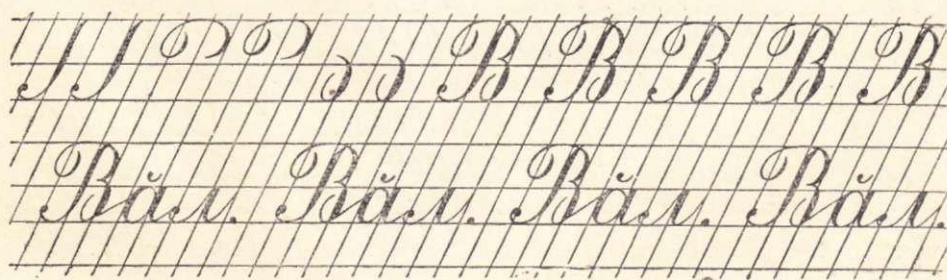 В В В В В
Вăл. Вăл. Вăл. Вăл.